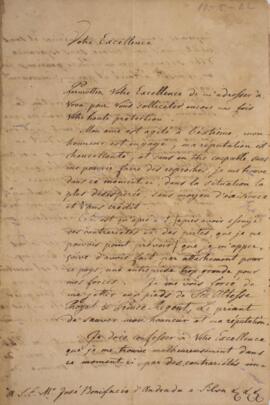 11-5-22
Votre Excellence
Permettez Votre Excellence de m'adresser à
Vous pour Vous solliciter encore une fois
Votre haute protection.
Mon âme est agitée à l'extrème, mon
honneur est engagé, ma réputation est
chancellante, et sans en être coupable sans
me pouvoir faire des reproches, je me trouve
dans ce moment ci, dans la situation la
plus désespérée, sans moyen d'existence
et sans crédit.
et après avoir essuyé
des contrariétés et des pertes que je ne
pouvois point prévoir, que je m'apper-
çoive d'avoir fait par attachement pour
ce pays, une entreprise trop grande pour
nos forces. Je me vois forcé de
me jetter aux pieds de Son Altesse
Royal le Prince Régent, Le priant
de sauver mon honneur et ma réputation
Je dois confesser à Votre Excellence
que je me trouve malheureusement dans
ce moment ci par des contrariétés
a S. E. Mr José Bonifacio d'Andrada e Silva